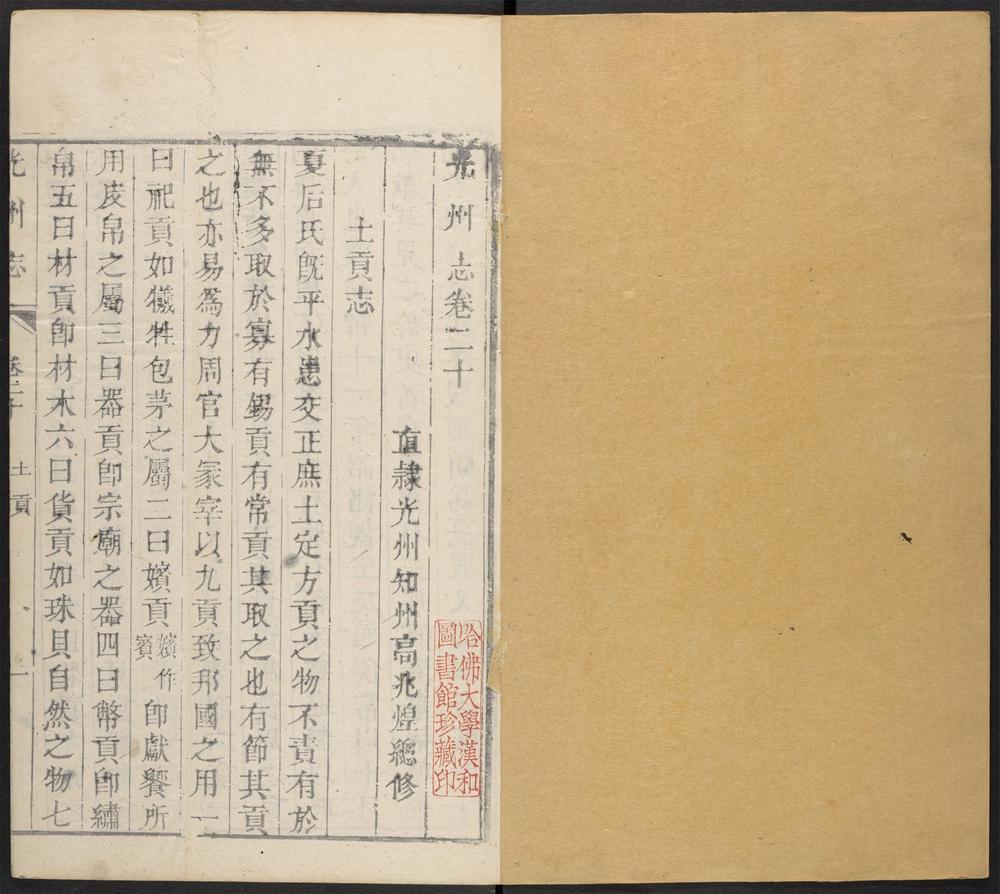 光州志卷二十
直隸光州知州高兆煌總修
土貢志
夏后氏旣平水患交正庶土定方貢之物不責有於
無不多取於寡有錫貢有常貢其取之也有節其貢
之也亦易爲力周官大冢宰以九貢致邦國之用一
曰祀貢如犧牲包茅之屬二曰嬪貢嬪作賓卽獻饗所
用皮帛之屬三曰器貢卽宗廟之器四曰幣貢卽繡
帛五曰材貢卽材木六曰貨貢如珠貝自然之物七
光州志 卷二十 土貢 一
哈佛大學漢和圖書館珍藏印